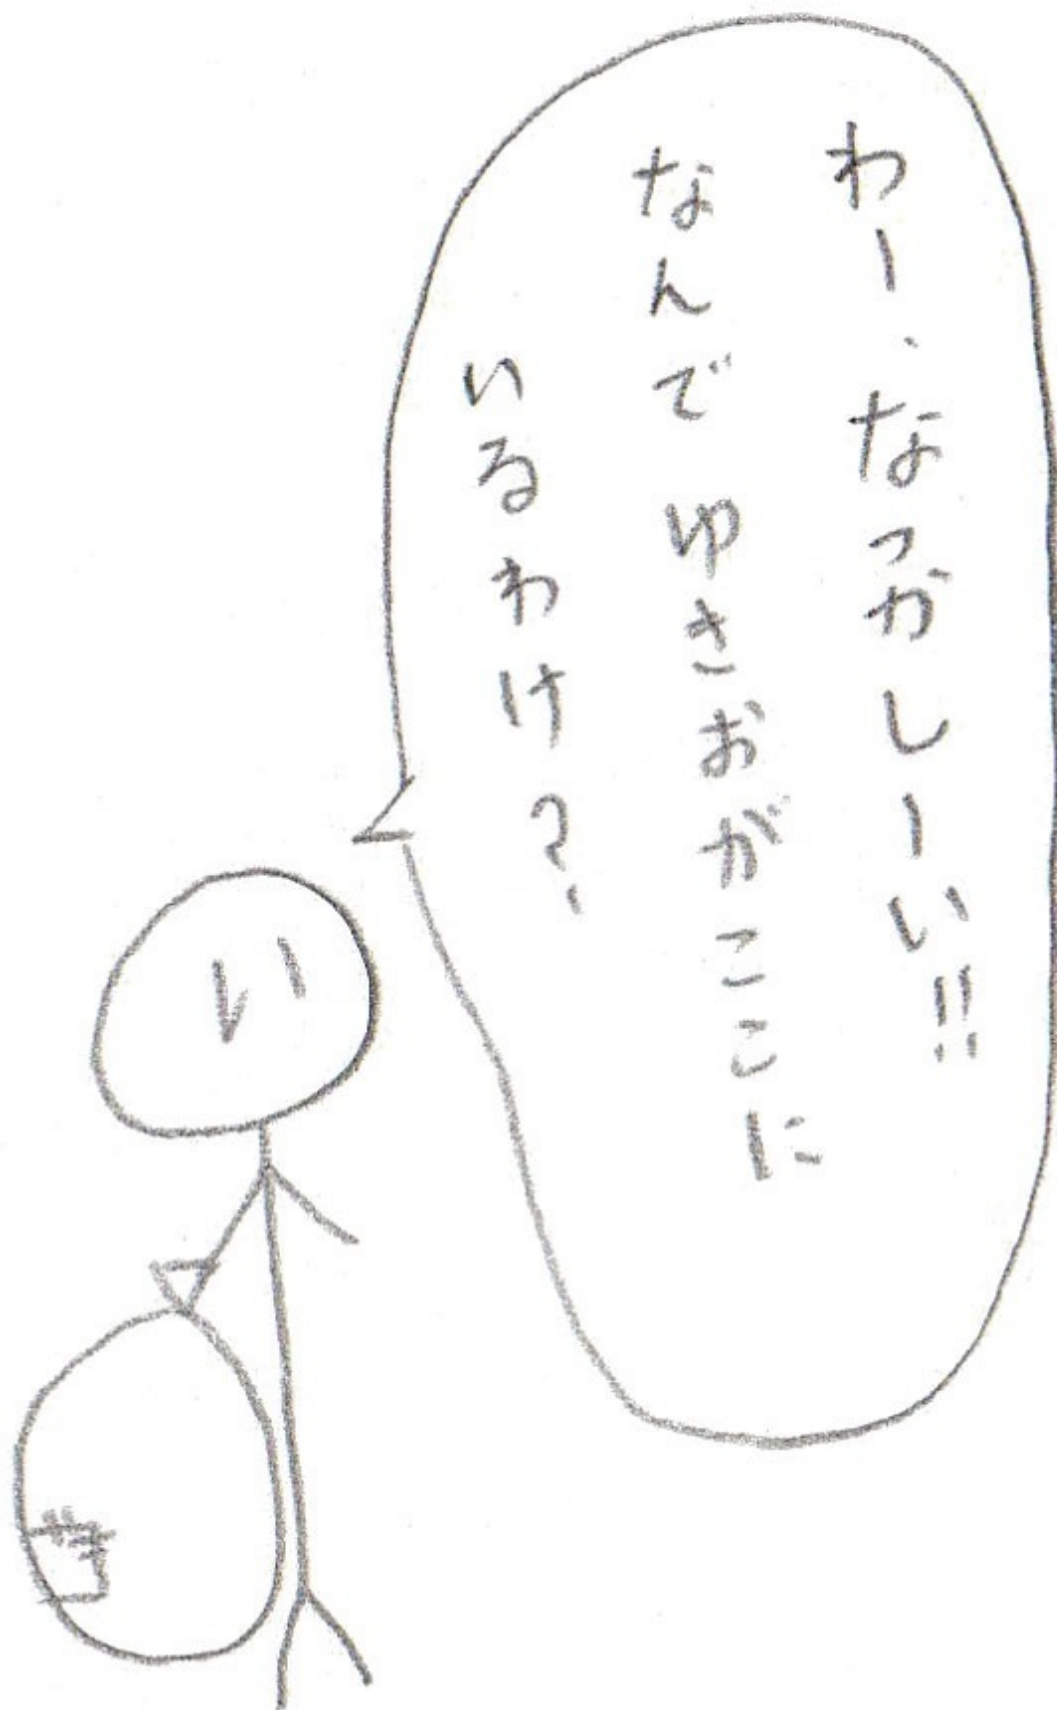 わー、なつかしーい!!
なんでゆさおがここに
いるわけ?
い